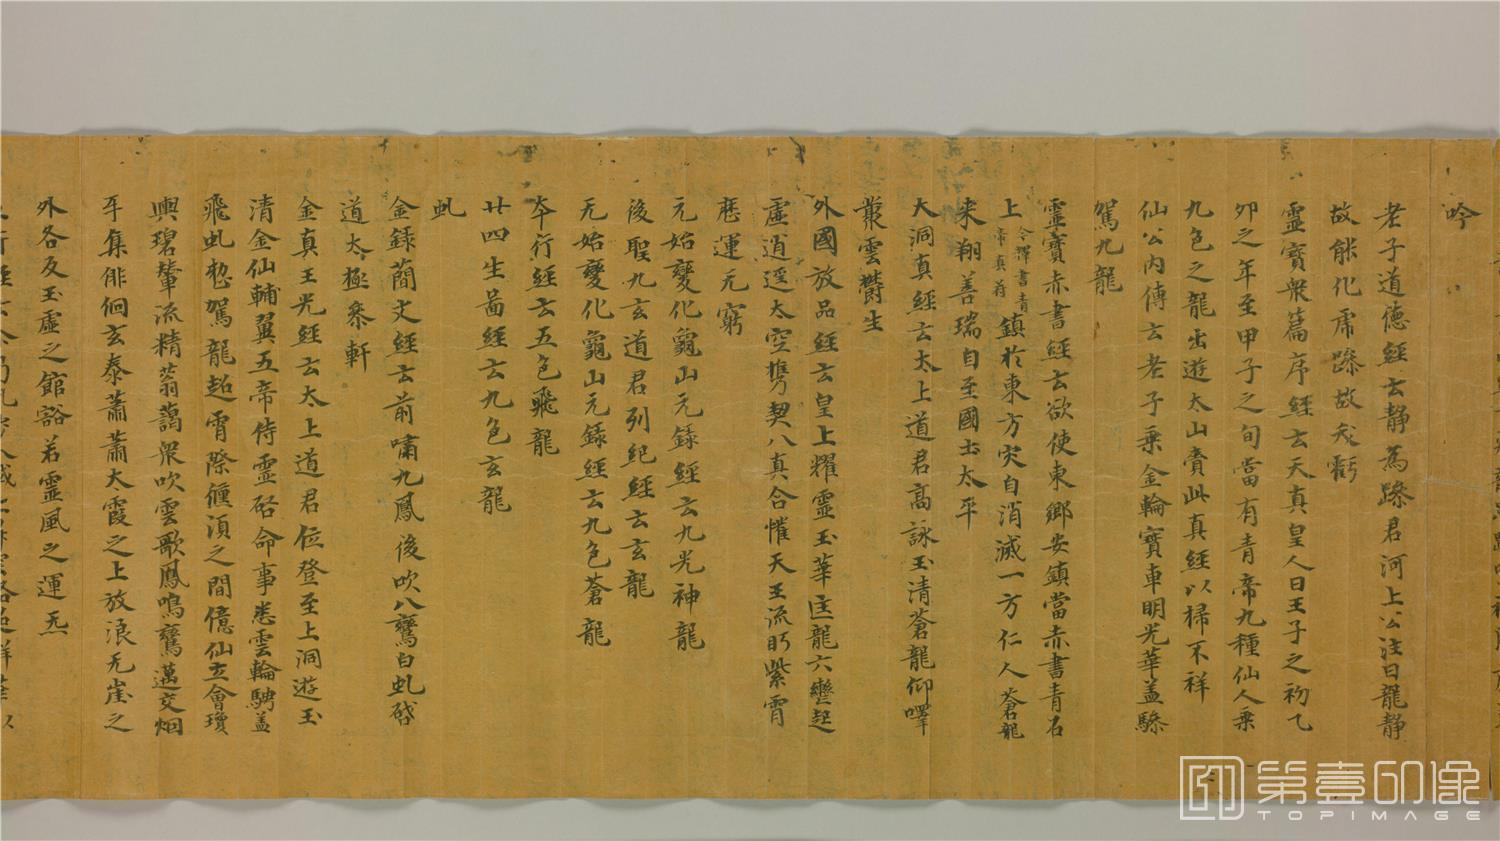 吟
老子道德經云静為躁君河上公注曰龍静
故能化席躁故夭虧
靈寶衆篇序經云天真皇人曰王子之初乙
夘之年至甲子之旬當有青帝九種仙人乗
九色之龍出遊太山賷此真經以掃不祥
仙公内傳云老子乗金輪寶車明光華盖驂
駕九龍
靈寶赤書經云欲使東郷安鎮當赤書青石
上鎮於東方灾自消滅一方仁人蒼龍
来翔善瑞自至國土太平
大洞真經云太上道君高詠玉清蒼龍仰嘷
叢雲欝生
外國放品經云皇上耀靈玉華匡龍六轡起
虚逍遥太空携契八真合懽天王流眄紫霄
歴運无窮
元始變化龜山元録經云九光神龍
後聖九玄道君列紀經云玄龍
元始變化龜山元録經云九色蒼龍
本行經云五色飛龍
廿四生啚經云九色玄龍
虬
金録蕳文經云前嘯九鳳後吹八鸞白虬啓
道太極叅軒
金真玉光經云太上道君位登至上洞遊玉
清金仙輔翼五帝侍靈啓命事悉雲輪騁盖
飛虬惣駕龍超霄際偃湏之間億仙立會瓊
輿碧輦流精蓊藹衆吹雲歌鳳鳴鸞邁交烟
平集俳佪玄泰蕭蕭大霞之上放浪无崖之
外各反玉虚之館豁若靈風之運炁
第壹印像
TOPIMAGE